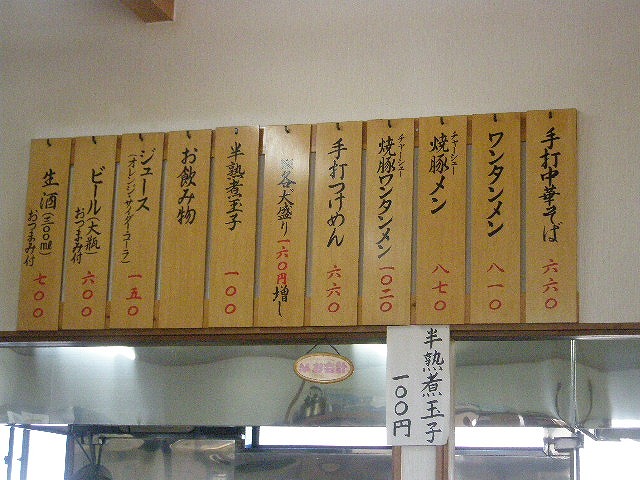 手打中華そば 六六〇
ワンタンメン 八一〇
チャーシュー
焼豚メン 八七〇
チャーシュー
焼豚ワンタンメン 一〇二〇
手打つけめん 六六〇
※各大盛り一六〇円増し
半熟煮玉子 一〇〇
お飲み物
ジュース
(オレンジ・サイダー・コーラ) 一五〇
ビール(大瓶)
おつまみ付 六〇〇
生酒(三〇〇ml)
おつまみ付 七〇〇
半熟煮玉子
一〇〇円
お会計